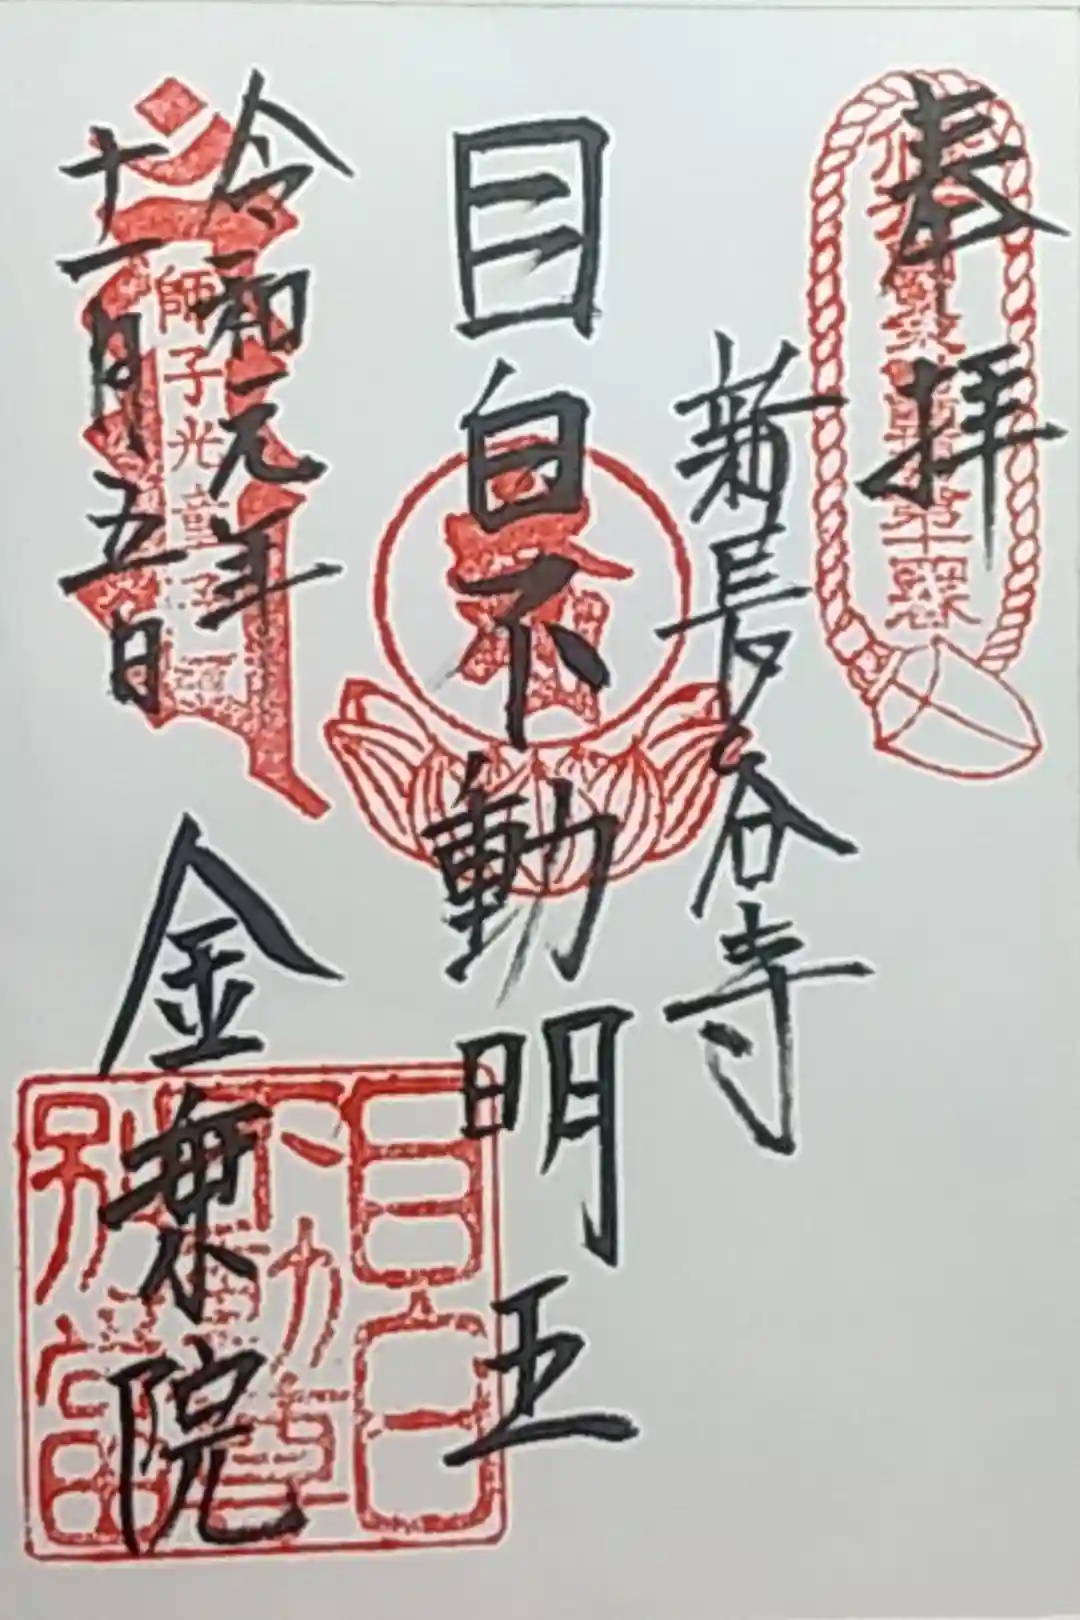 奉拝
新長谷寺
目白不動明王
令和元年
十一月五日
師子光童子
金乗院